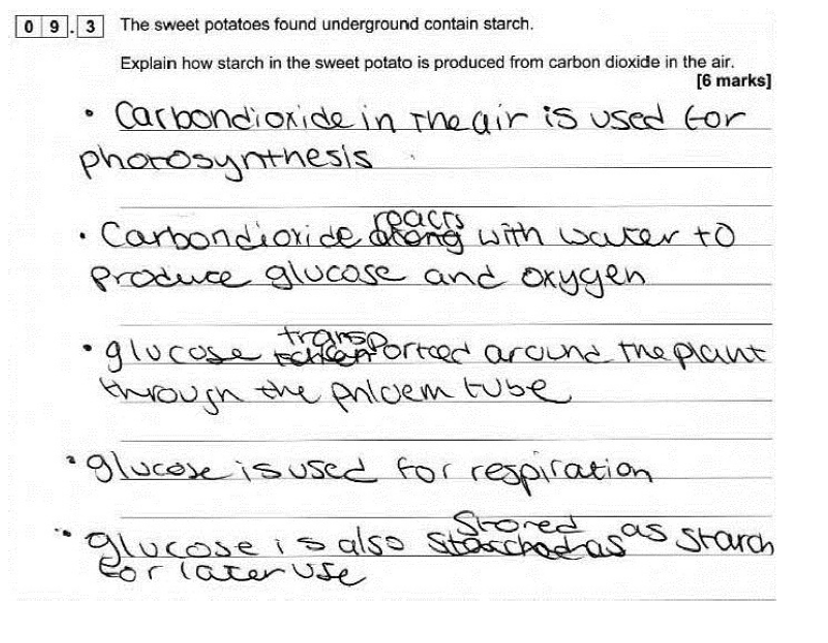 09.3 The sweet potatoes found underground contain starch.
Explain how starch in the sweet potato is produced from carbon dioxide in the air.
[6 marks]
• Carbondioxide in the air is used for
photosynthesis
• Carbondioxide reacts with water to
produce glucose and oxygen
• glucose transported around the plant
through the phloem tube
• glucose is used for respiration
• glucose is also stored as starch
for later use